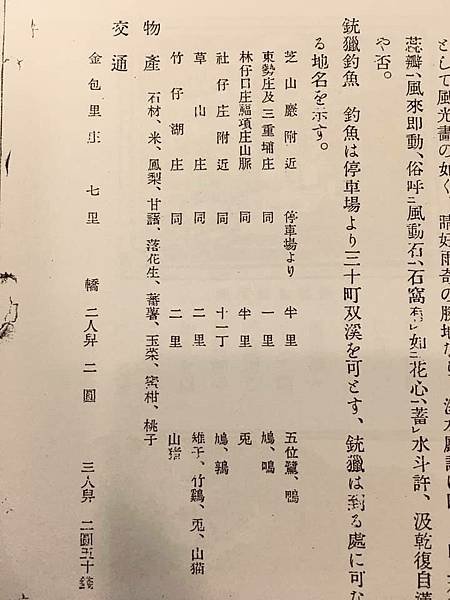 として風光畫の如く、晴好雨奇の勝地な
蕊瓣、風來即動、俗呼ニ風動石、石窩有レ如ニ花心、蓄レ水斗許、汲乾復自滿
や否。
銃獵釣魚 釣魚は停車場より三十町双溪を可とす、銃獵は到る處に可な
る地名を示す。
芝山巖附近 停車場より 半里 五位鷺、鴨
東勢庄及三重埔庄 同 一里 鳩、鴫
林仔口庄福項庄山脈 同 半里 兎
社仔庄附近 同 十一丁 鳩、鶉
草山庄 同 二里 雉子、竹鷄、兎、山猫
竹仔湖庄 同 二里 山猪
物産 石材、米、鳳梨、甘藷、落花生、蕃薯、玉菜、蜜柑、桃子
交通
金包里庄 七里 轎 二人舁 二圓 三人舁 二圓五十錢